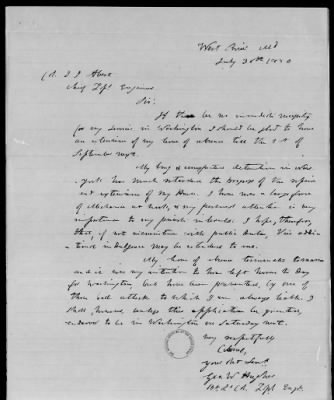 West River Md
July 30th 1850
Col J J Abert
Chief Topl Engineers
Sir:
If there be no immediate necessity
for my services in Washington I should be glad to have
an extension of my leave of absence till the 1st of
September next.
My long & unexpected detention in New
York has much retarded the progress of the repairs
and extensions of my House. I have now a large force
of Mechanics at work, & my personal attention is very
important to my private interests. I hope, therefore,
that, if not inconsistent with public duties, this addi-
tional indulgence may be extended to me.
My leave of absence terminates tomorrow
and it was my intention to have left home to day
for Washington, but have been prevented, by one of
those attacks to which I am always liable. I
shall, however, unless this application be granted,
endeavor to be in Washington on Saturday next.
Very respectfully
Colonel,
your obt Servt
Geo W Hughes
Bt Lt Col. Topl Engrs